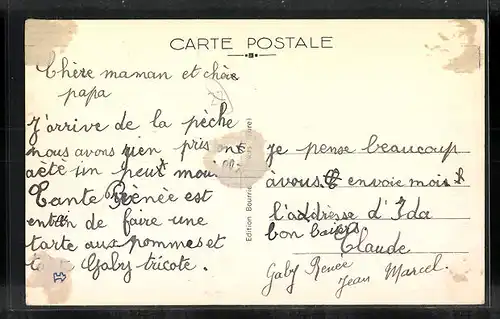 CARTE POSTALE
Chère maman et chère
papa
J'arrive de la pèche
nous avons rien pris ont
aété un peut
Tante Rénée est
entrin de faire une
tarte aux pommes et
Gaby tricote.
Edition Bourrie
je pense beaucoup
àvous. envoie mois
l'addresse d'Ida
bon baisers
Claude
Gaby Renée
Jean Marcel.